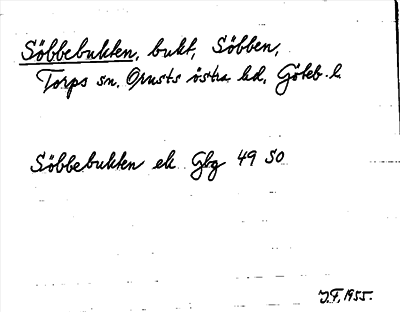 Söbbebukten, bukt, Söbben,
Torps sn. Orusts östra hd, Göteb. l.
Söbbebukten ek Gbg 49 SO
J.F. 1955.